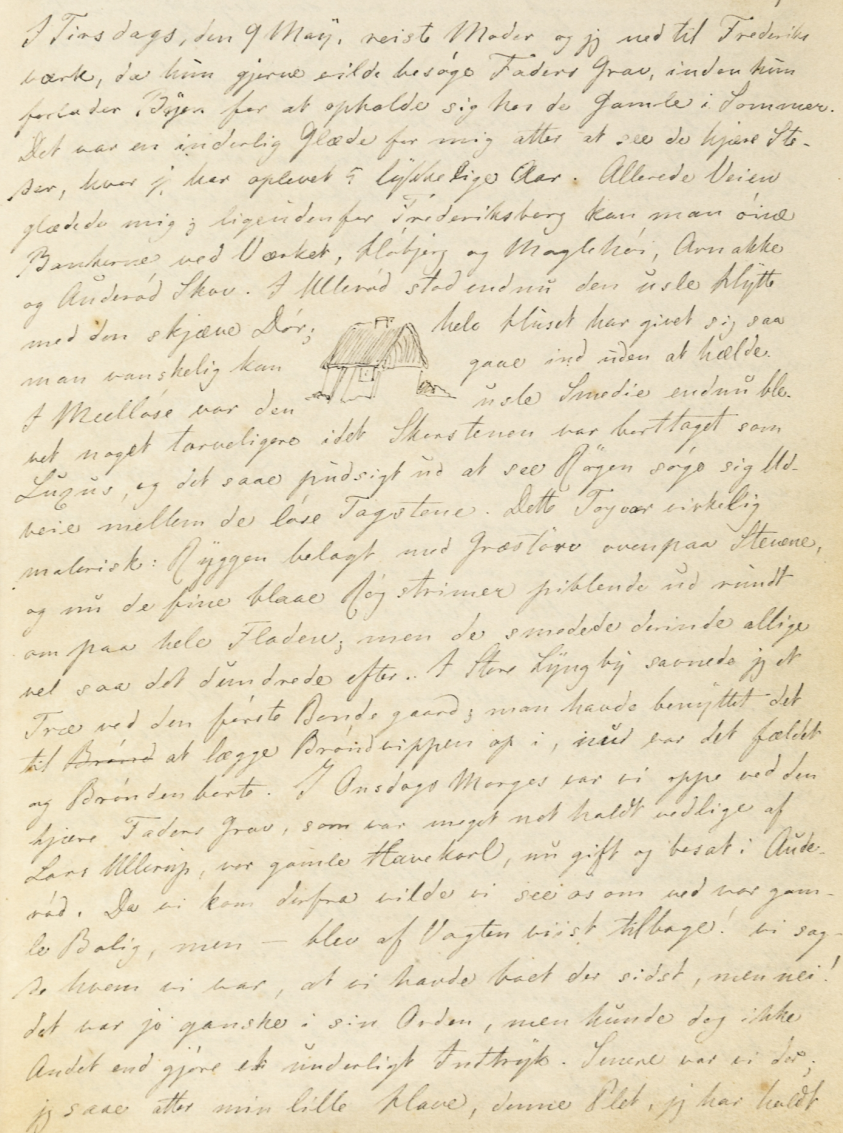 I Tirsdags, den 9 Maÿ, reiste Moder og jeg ned til Frederiks
værk, da hün gjerne vilde besøge Faders Grav, inden hün
forlader Byen for at opholde sig hos de Gamle i Sommer.
Det var en inderlig Glæde for mig atter at see de kjære Ste-
der, hvor jeg har oplevet 5 lÿkkelige Aar. Allerede Veien
glædede mig; ligeüdenfor Frederiksborg kan man öine
Bankerne ved Værket, Höbjerg og Maglehöi, Arnakke
og Auderöd Skov. I Ulleröd stod endnü den üsle Hÿtte
med den skjæve Dör; hele Hüset har givet sig saa
man vanskelig kan gaae ind üden at hælde.
I Meellöse var den üsle Smedie endnü ble-
vet noget tarveligere idet Skorstenen var borttaget som
Luxus, og det saae püdsigt üd at see Rögen söge sig Ud-
veie mellem de löse Tagstene. Dette Tag var virkelig
malerisk: Rÿggen belagt med Græstörv ovenpaa Stenene,
og nü de fine blaae Rögstrimer piblende üd ründt
om paa hele Fladen; men de smedede derinde allige
vel saa det dündrede efter. I Store Lÿngbÿ savnede jeg et
Træ ved den förste Bondegaard; man havde benÿttet det
til Brönd at lægge Bröndvippen op i, nü var det fældet
og Brönden borte. I Onsdags Morges var vi oppe ved den
kjære Faders Grav, som var meget net holdt vedlige af
Lars Ullerup, vor gamle Havekarl, nü gift og bosat i Aude-
röd. Da vi kom derfra vilde vi see os om ved vor gam-
le Bolig, men — blev af Vagten viist tilbage! vi sag-
de hvem vi var, at vi havde boet der sidst, men nei!
det var jo ganske i sin Orden, men künde dog ikke
Andet end gjöre et ünderligt Indtrÿk. Senere var vi der;
jeg saae atter min lille Have, denne Plet, jeg har holdt